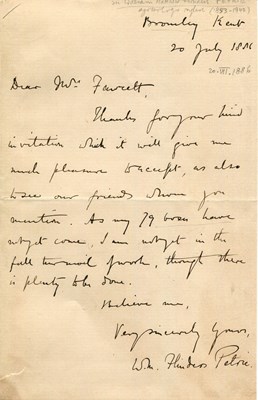 Bromley Kent
20 July 1886
20.VII.1886
Dear Mrs Fawcett,
Thanks for your kind
invitation which it will give me
much pleasure to accept, as also
to see our friends whom you
mention. As my 79 boxes have
not yet come, I am not yet in the
full turmoil of work, though there
is plenty to be done.
Believe me,
Very sincerely Yours,
Wm. Flinders Petrie.